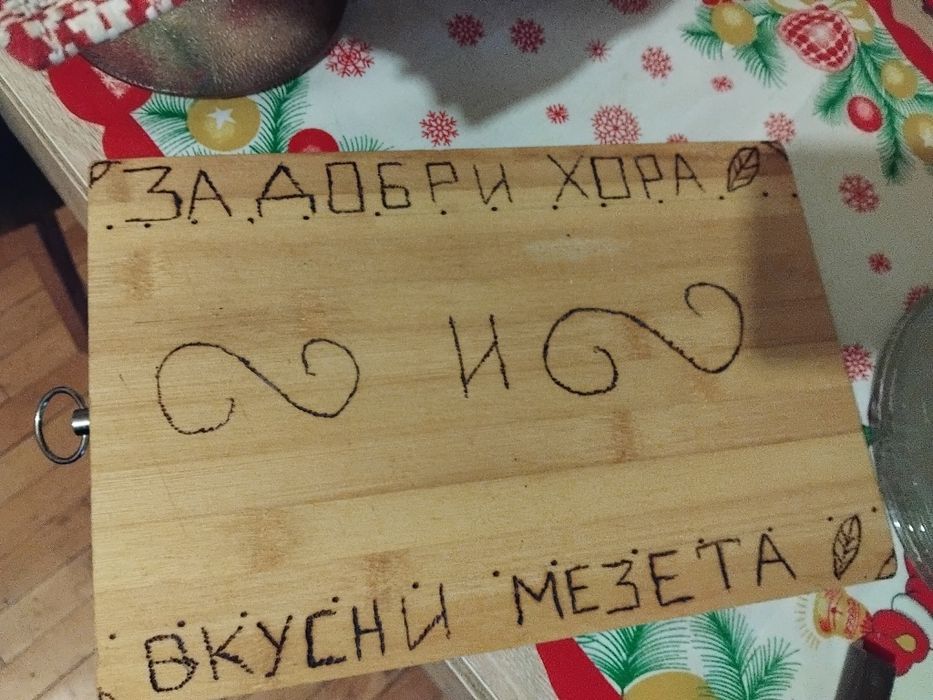 ЗА ДОБРИ ХОРА
И
ВКУСНИ МЕЗЕТА